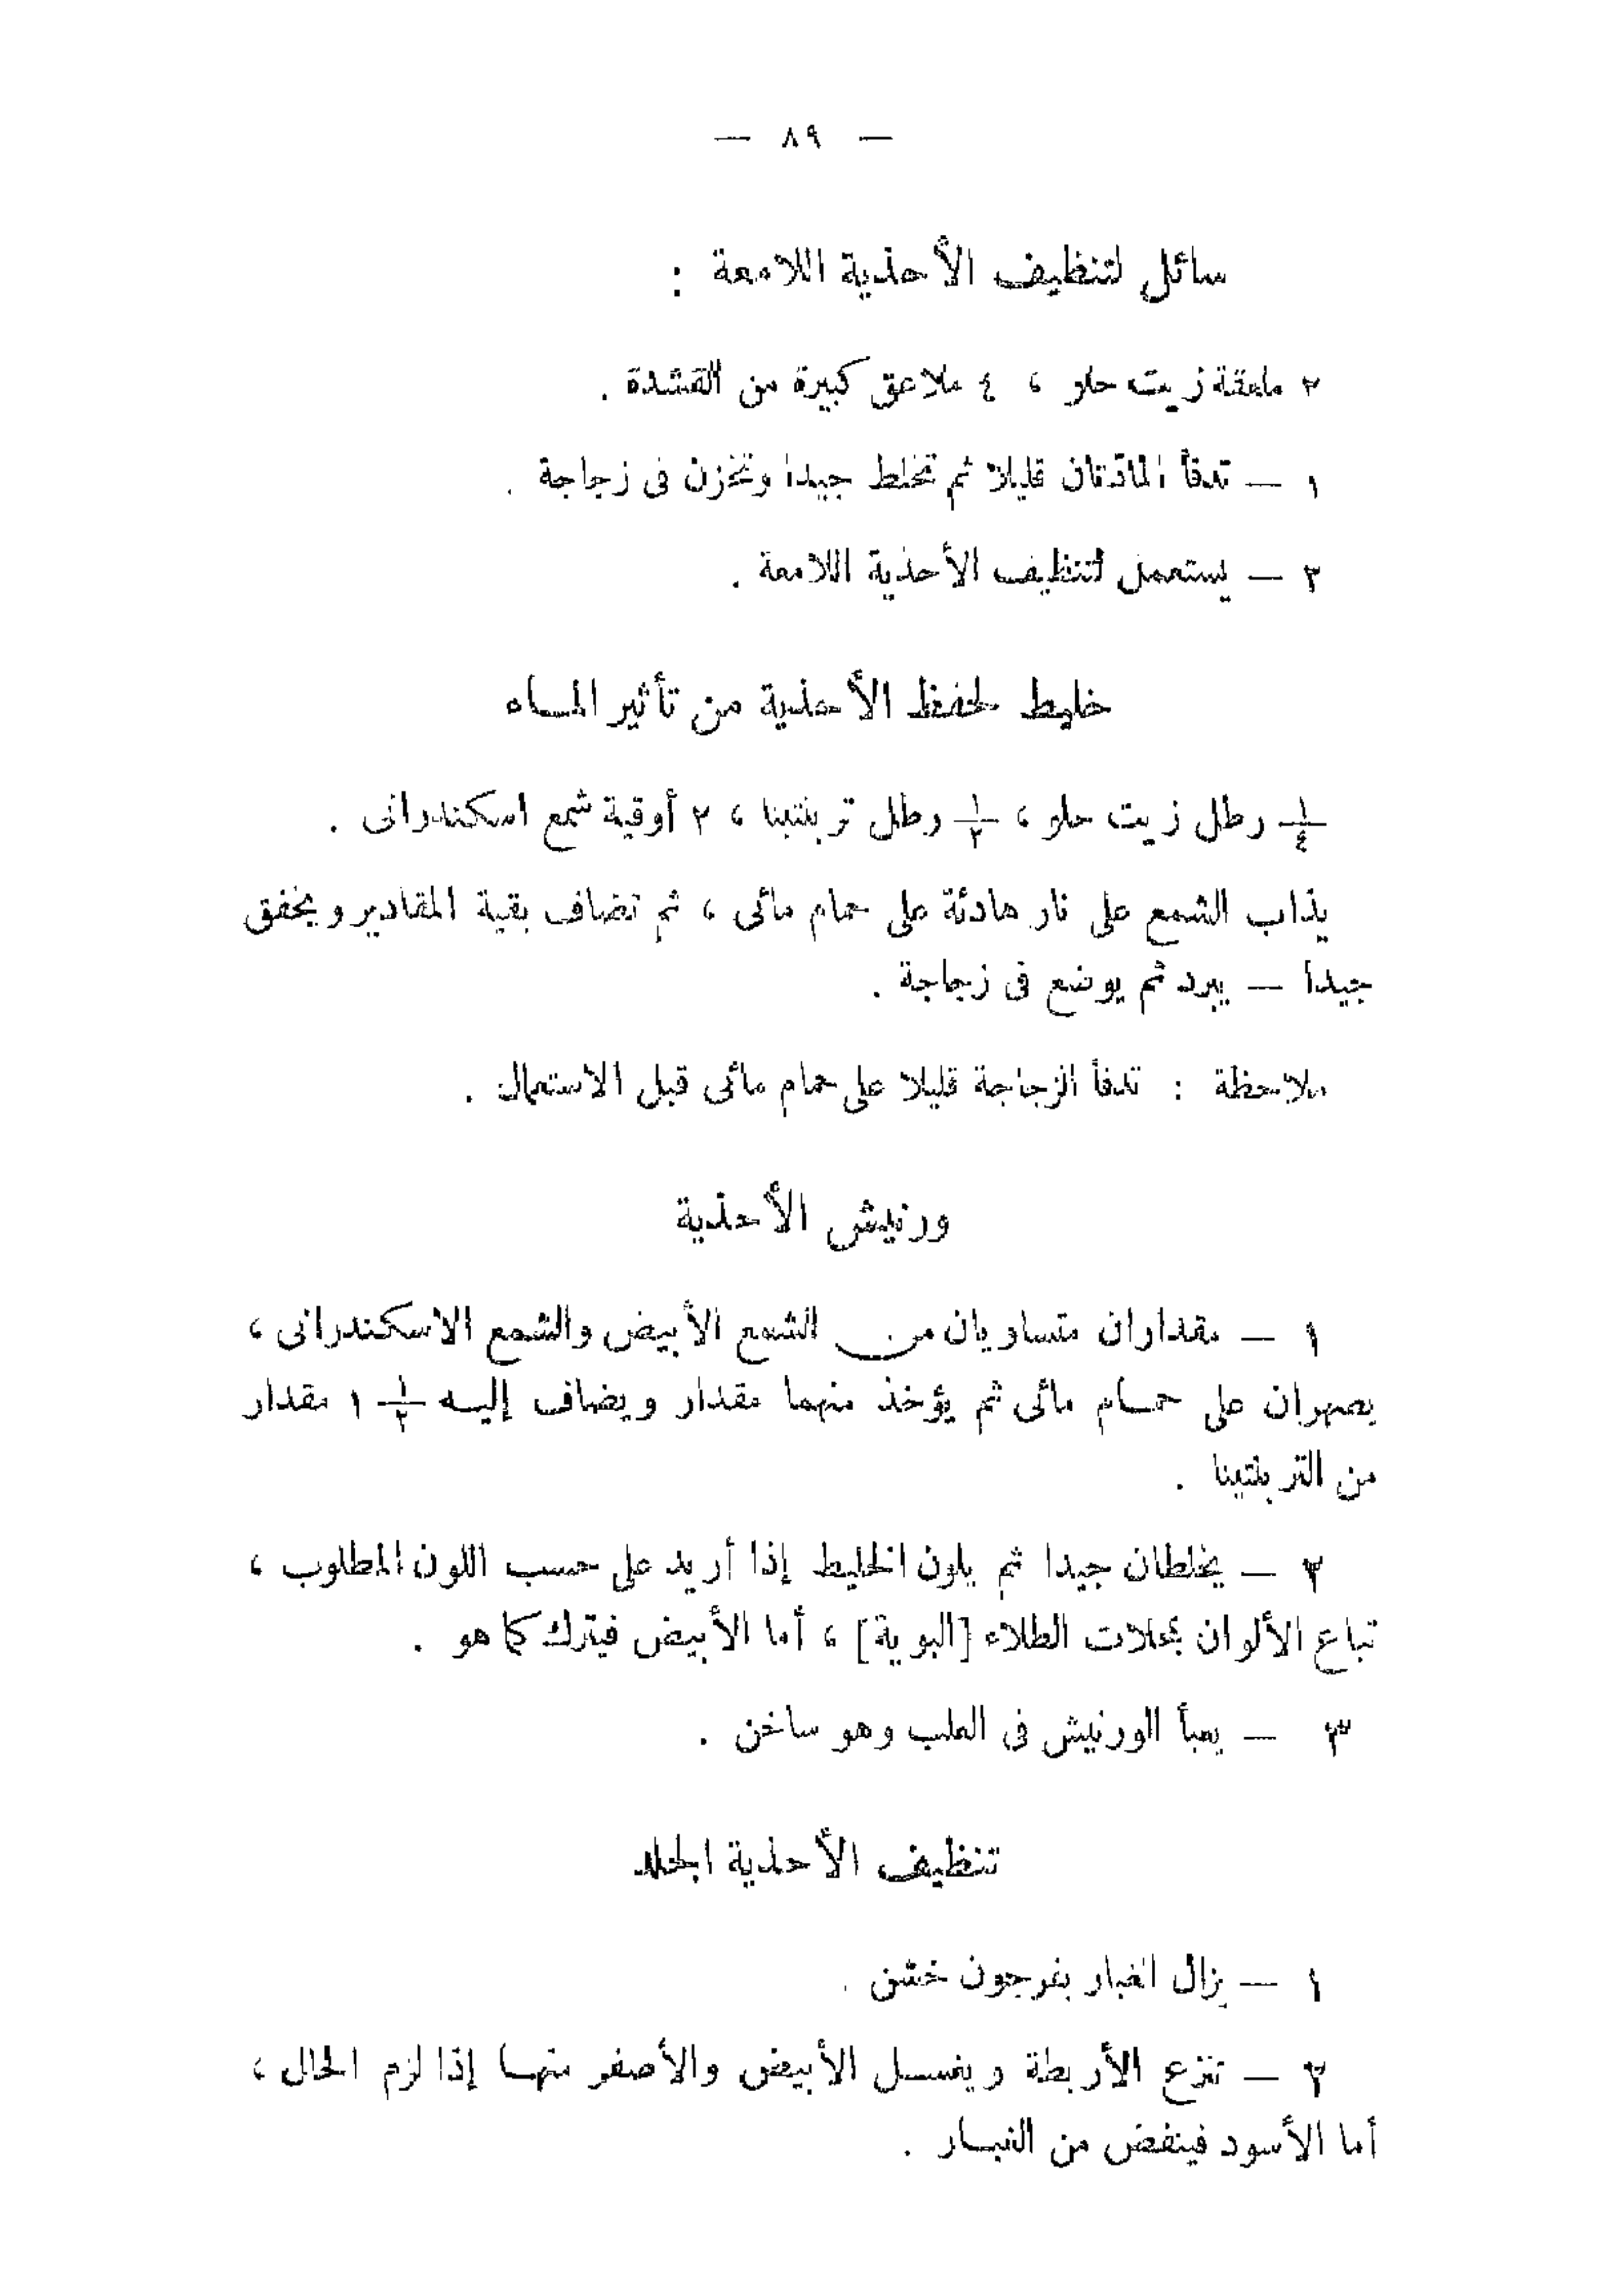 — ٨٩ —
سائل لتنظيف الأحذية اللامعة :
٢ ملعقة زيت حلو ، ٤ ملاعق كبيرة من القشدة .
١ — تدفأ المادّتان قليلا ثم تخلط جيدا وتخزن فى زجاجة .
٢ — يستعمل لتنظيف الأحذية اللامعة .
خليط لحفظ الأحذية من تأثير المياه
١/٤ رطل زيت حلو ، ١/٢ رطل تربنتينا ، ٢ أوقية شمع اسكندرانى .
يذاب الشمع على نار هادئة على حمام مائى ، ثم تضاف بقية المقادير ويخفق
جيدا — يبرد ثم يوضع فى زجاجة .
ملاحظة : تدفأ الزجاجة قليلا على حمام مائى قبل الاستعمال .
ورنيش الأحذية
١ — مقداران متساويان من الشمع الأبيض والشمع الاسكندرانى ،
يصهران على حمام مائى ثم يؤخذ منهما مقدار ويضاف إليه ١/٢ ١ مقدار
من التربنتينا .
٢ — يخلطان جيدا ثم يلون الخليط إذا أريد على حسب اللون المطلوب ،
تباع الألوان بمحلات الطلاء [البوية] ، أما الأبيض فيترك كما هو .
٣ — يعبأ الورنيش فى العلب وهو ساخن .
تنظيف الأحذية الجلد
١ — يزال الغبار بفرجون خشن .
٢ — تنزع الأربطة ويغسل الأبيض والأصفر منها إذا لزم الحال ،
أما الأسود فينفض من الغبار .